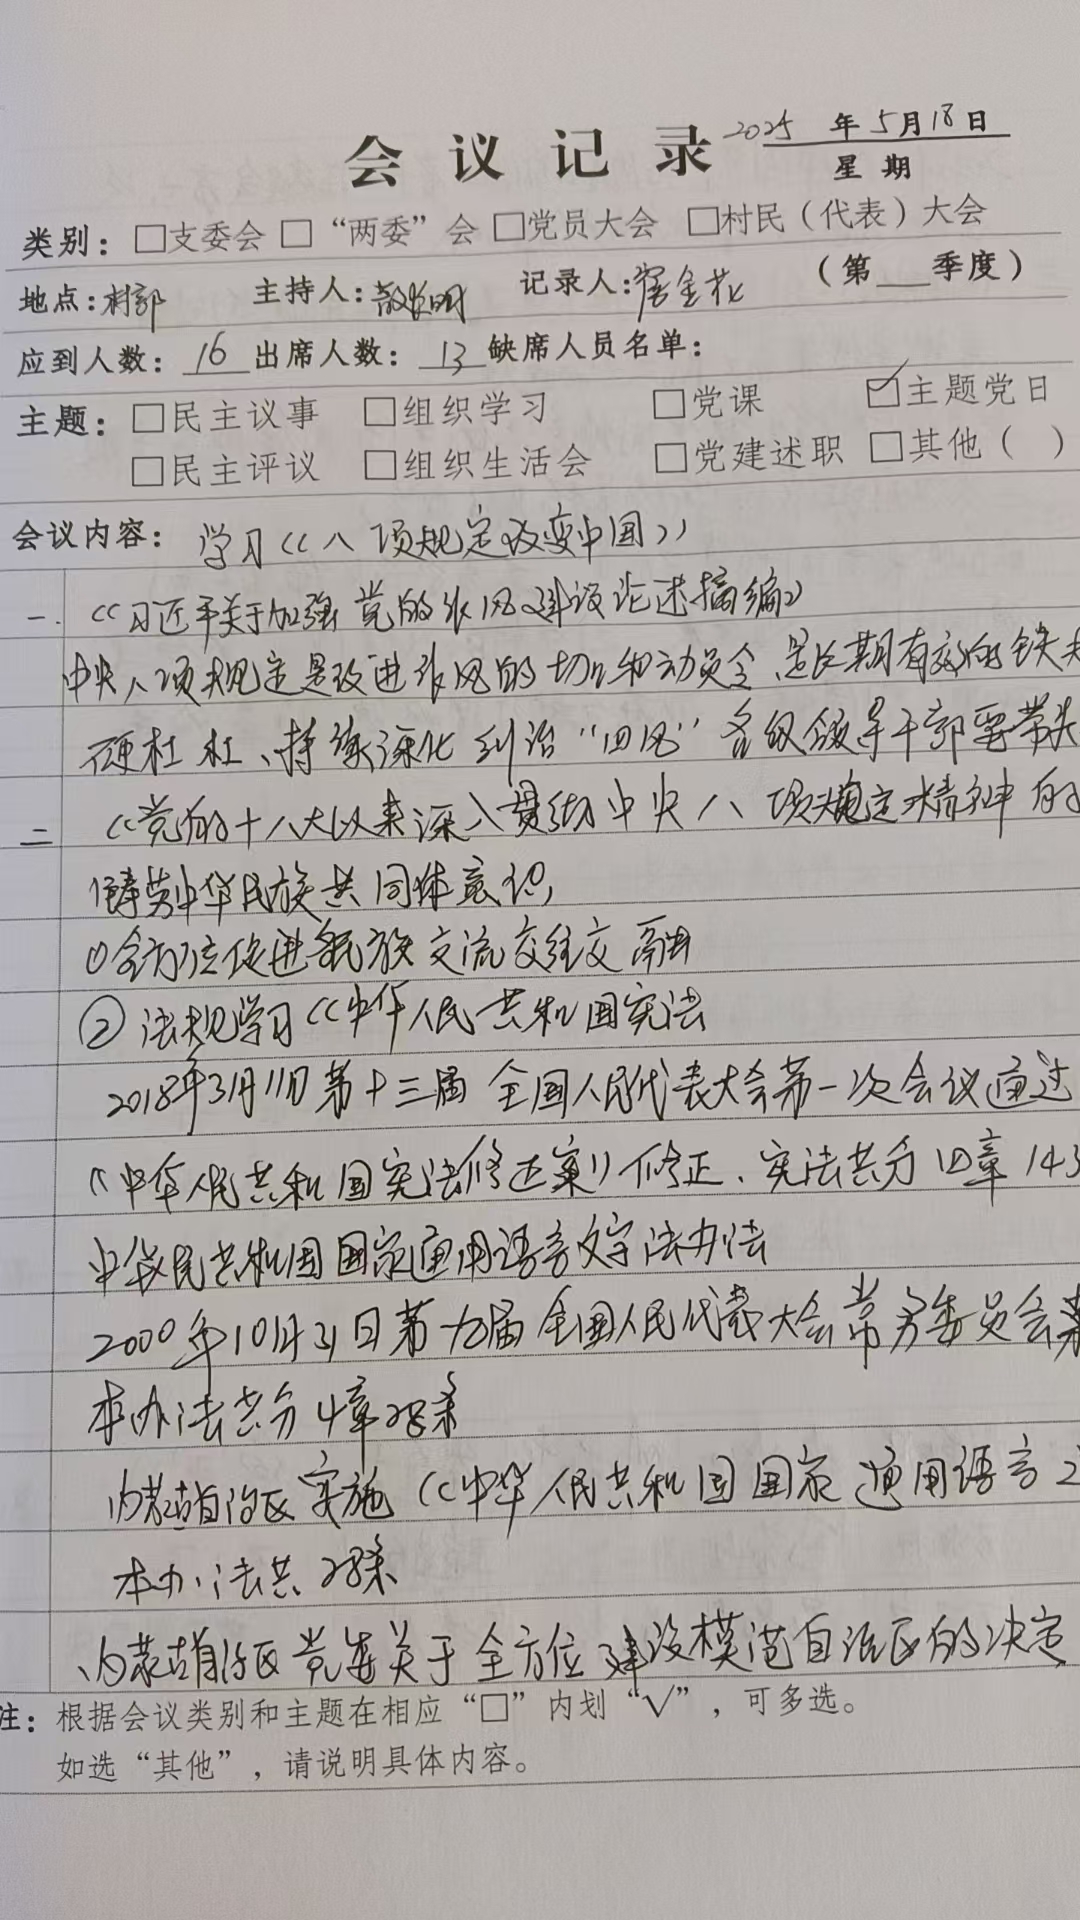 会议记录 2025年5月18日
星期
类别：□支委会 □“两委”会 □党员大会 □村民（代表）大会
地点：村部 主持人： 记录人： （第 季度）
应到人数：16 出席人数：13 缺席人员名单：
主题：□民主议事 □组织学习 □党课 ☑主题党日
□民主评议 □组织生活会 □党建述职 □其他（ ）
会议内容：学习《八项规定改变中国》
一.《习近平关于加强党的作风建设论述摘编》
中央八项规定是改进作风的切口和动员令、是长期有效的铁规
硬杠杠、持续深化纠治“四风”各级领导干部要带头
二《党的十八大以来深入贯彻中央八项规定精神的
铸劳中华民族共同体意识,
①全方位促进各民族交流交往交融
②法规学习《中华人民共和国宪法
2018年3月11日第十三届全国人民代表大会第一次会议通过
《中华人民共和国宪法修正案》修正、宪法共分四章143
中华民共和国国家通用语言文字法办法
2000年10月31日第九届全国人民代表大会常务委员会第
本办法共分4章28条
内蒙古自治区实施《中华人民共和国国家通用语言
本办法共28条
、内蒙古自治区党委关于全方位建设模范自治区的决定
注：根据会议类别和主题在相应“□”内划“√”，可多选。
如选“其他”，请说明具体内容。